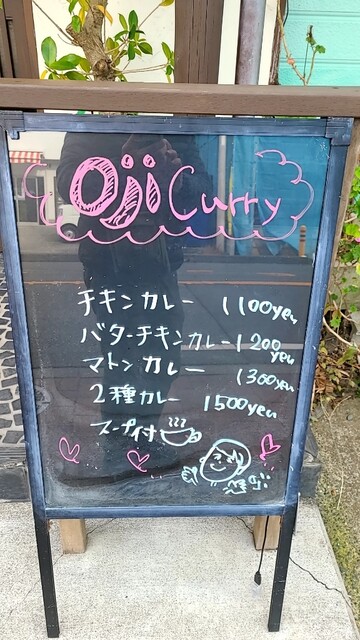 Oji Curry
チキンカレー 1100yen
バターチキンカレー 1200yen
マトンカレー 1300yen
2種カレー 1500yen
スープ付